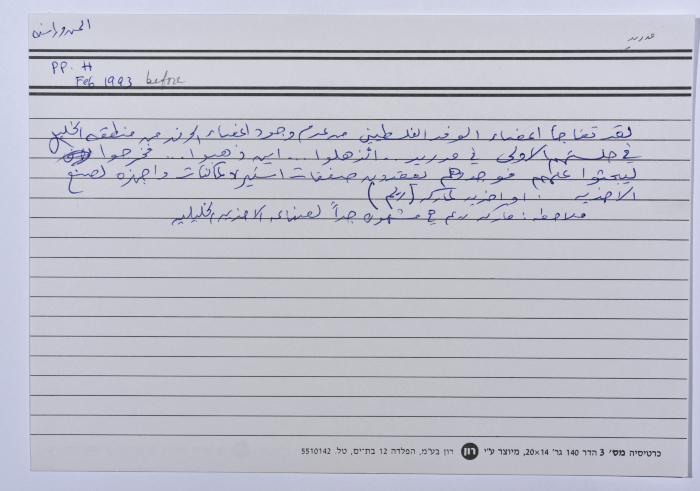 مدريد
PP. H
Feb 1993 before
لقد تفاجأ اعضاء الوفد الفلسطيني من عدم وجود اعضاء الوفد من منطقة الخليل
في جلستهم الاولى في مدريد .. انذهلوا ... اين ذهبوا ... فخرجوا
ليبحثوا عنهم فوجدوهم يعقدون صفقات استيراد ماكنات واجهزه لصنع
الاحذيه . او احذيه ماركة (ريم)
ملاحظه : ماركه ريم مشهوره جداً لصناعة الاحذيه الخليليه
כרטיסיה מס' 3 הדר 140 גר' 14×20, מיוצר ע"י רון רון בע"מ, הפלדה 12 בת-ים, טל. 5510142